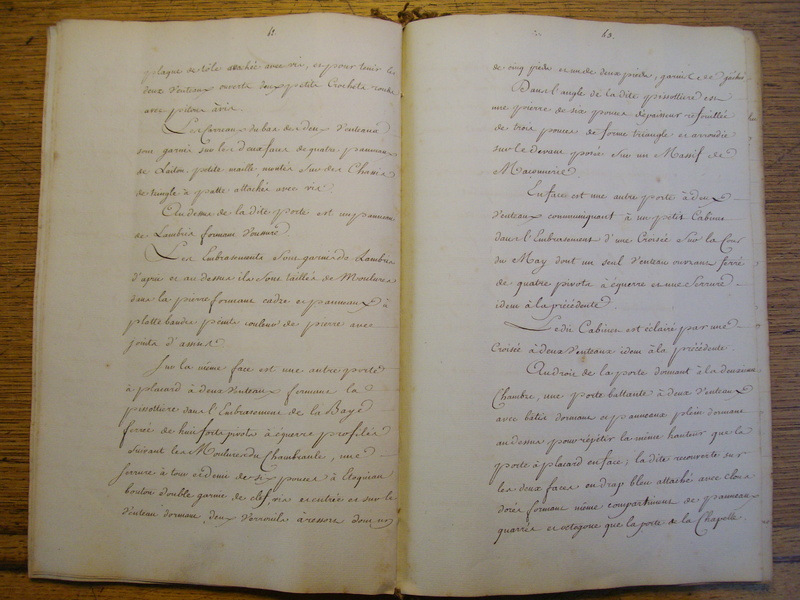 plaque de tôle attachée avec vis, et pour tenir les
deux Venteaux ouverts deux petits Crochets ronds
avec pitons à vis.
Les Carreaux du bas des deux Venteaux
sont garnis sur les deux faces de quatre panneaux
de Laiton, petite maille, montés sur des Chassis
de tringle à patte attachés avec vis.
Au dessus de la dite porte est un panneau
de Lambris formant Voussure.
Les Embrasements sont garnis de Lambris
d'apuis et au dessus ils sont taillés de Moulures
dans la pierre formant cadre et panneaux à
platte bande peints couleur de pierre avec
joints d'assise
Sur la même face est une autre porte
à placard à deux Venteaux formant la
pissottiere dans l'Embrasement de la Baye
ferrée de huit forts pivots à équerre profilés
suivant les Moulures du Chambranle, une
serrure à tour et demi de six pouces à Cloquian
bouton double garnie de clef, vis et entrée et sur le
Venteau dormant deux Verrouils à ressort dont un
63.
de cinq pieds et un de deux pieds, garnis de gâches
Dans l'angle de la dite pissottiere est
une pierre de six pouces d'epaisseur refouillée
de trois pouces de forme triangle et arrondie
sur le devant posée sur un Massif de
Maçonnerie.
En face est une autre porte à deux
Venteaux communiquant à un petit Cabinet
dans l'Embrasement d'une Croisée sur la Cour
du May dont un seul Venteau ouvrant ferré
de quatre pivots à équerre et une Serrure
idem à la précédente.
Le dit Cabinet est éclairé par une
Croisée à deux Venteaux idem à la précédente.
Au droit de la porte donnant à la deuxieme
Chambre, une porte battante à deux Venteaux
avec bâtis dormant et panneaux plein dormant
au dessus pour répétir la même hauteur que la
porte à placard en face; la dite recouverte sur
les deux faces en drap bleu attaché avec clous
dorés formant même compartiment de panneaux
quarrés et octogone que la porte de la Chapelle.